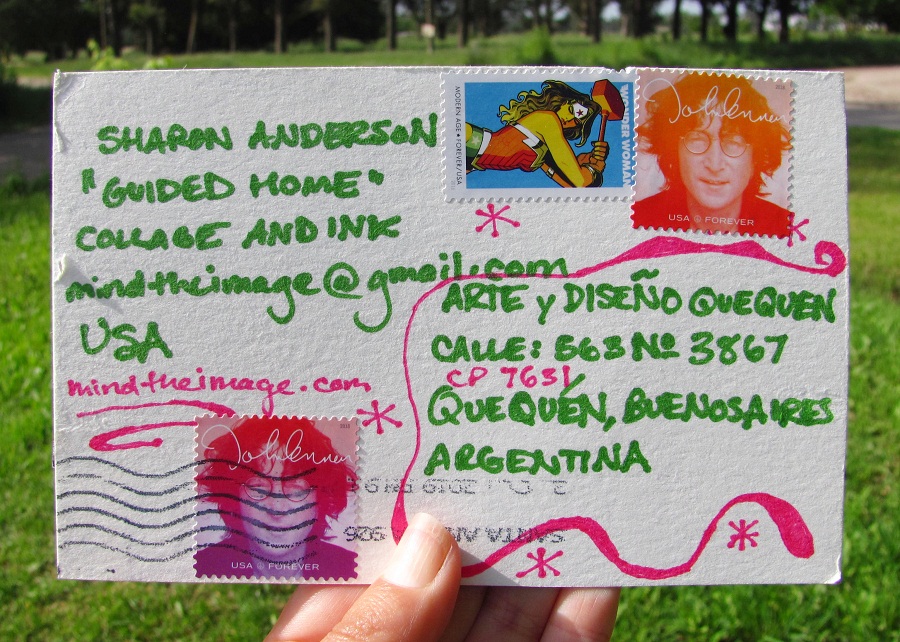 SHARON ANDERSON
"GUIDED HOME"
COLLAGE AND INK
mindtheimage@gmail.com
USA
mindtheimage.com
MODERN AGE • FOREVER/USA
WONDER WOMAN
John Lennon
USA FOREVER
ARTE y DISEÑO QUEQUEN
CALLE: 563 Nº 3867
CP 7631
QUEQUÉN, BUENOS AIRES
ARGENTINA
John Lennon
USA FOREVER
SANTA AN
926